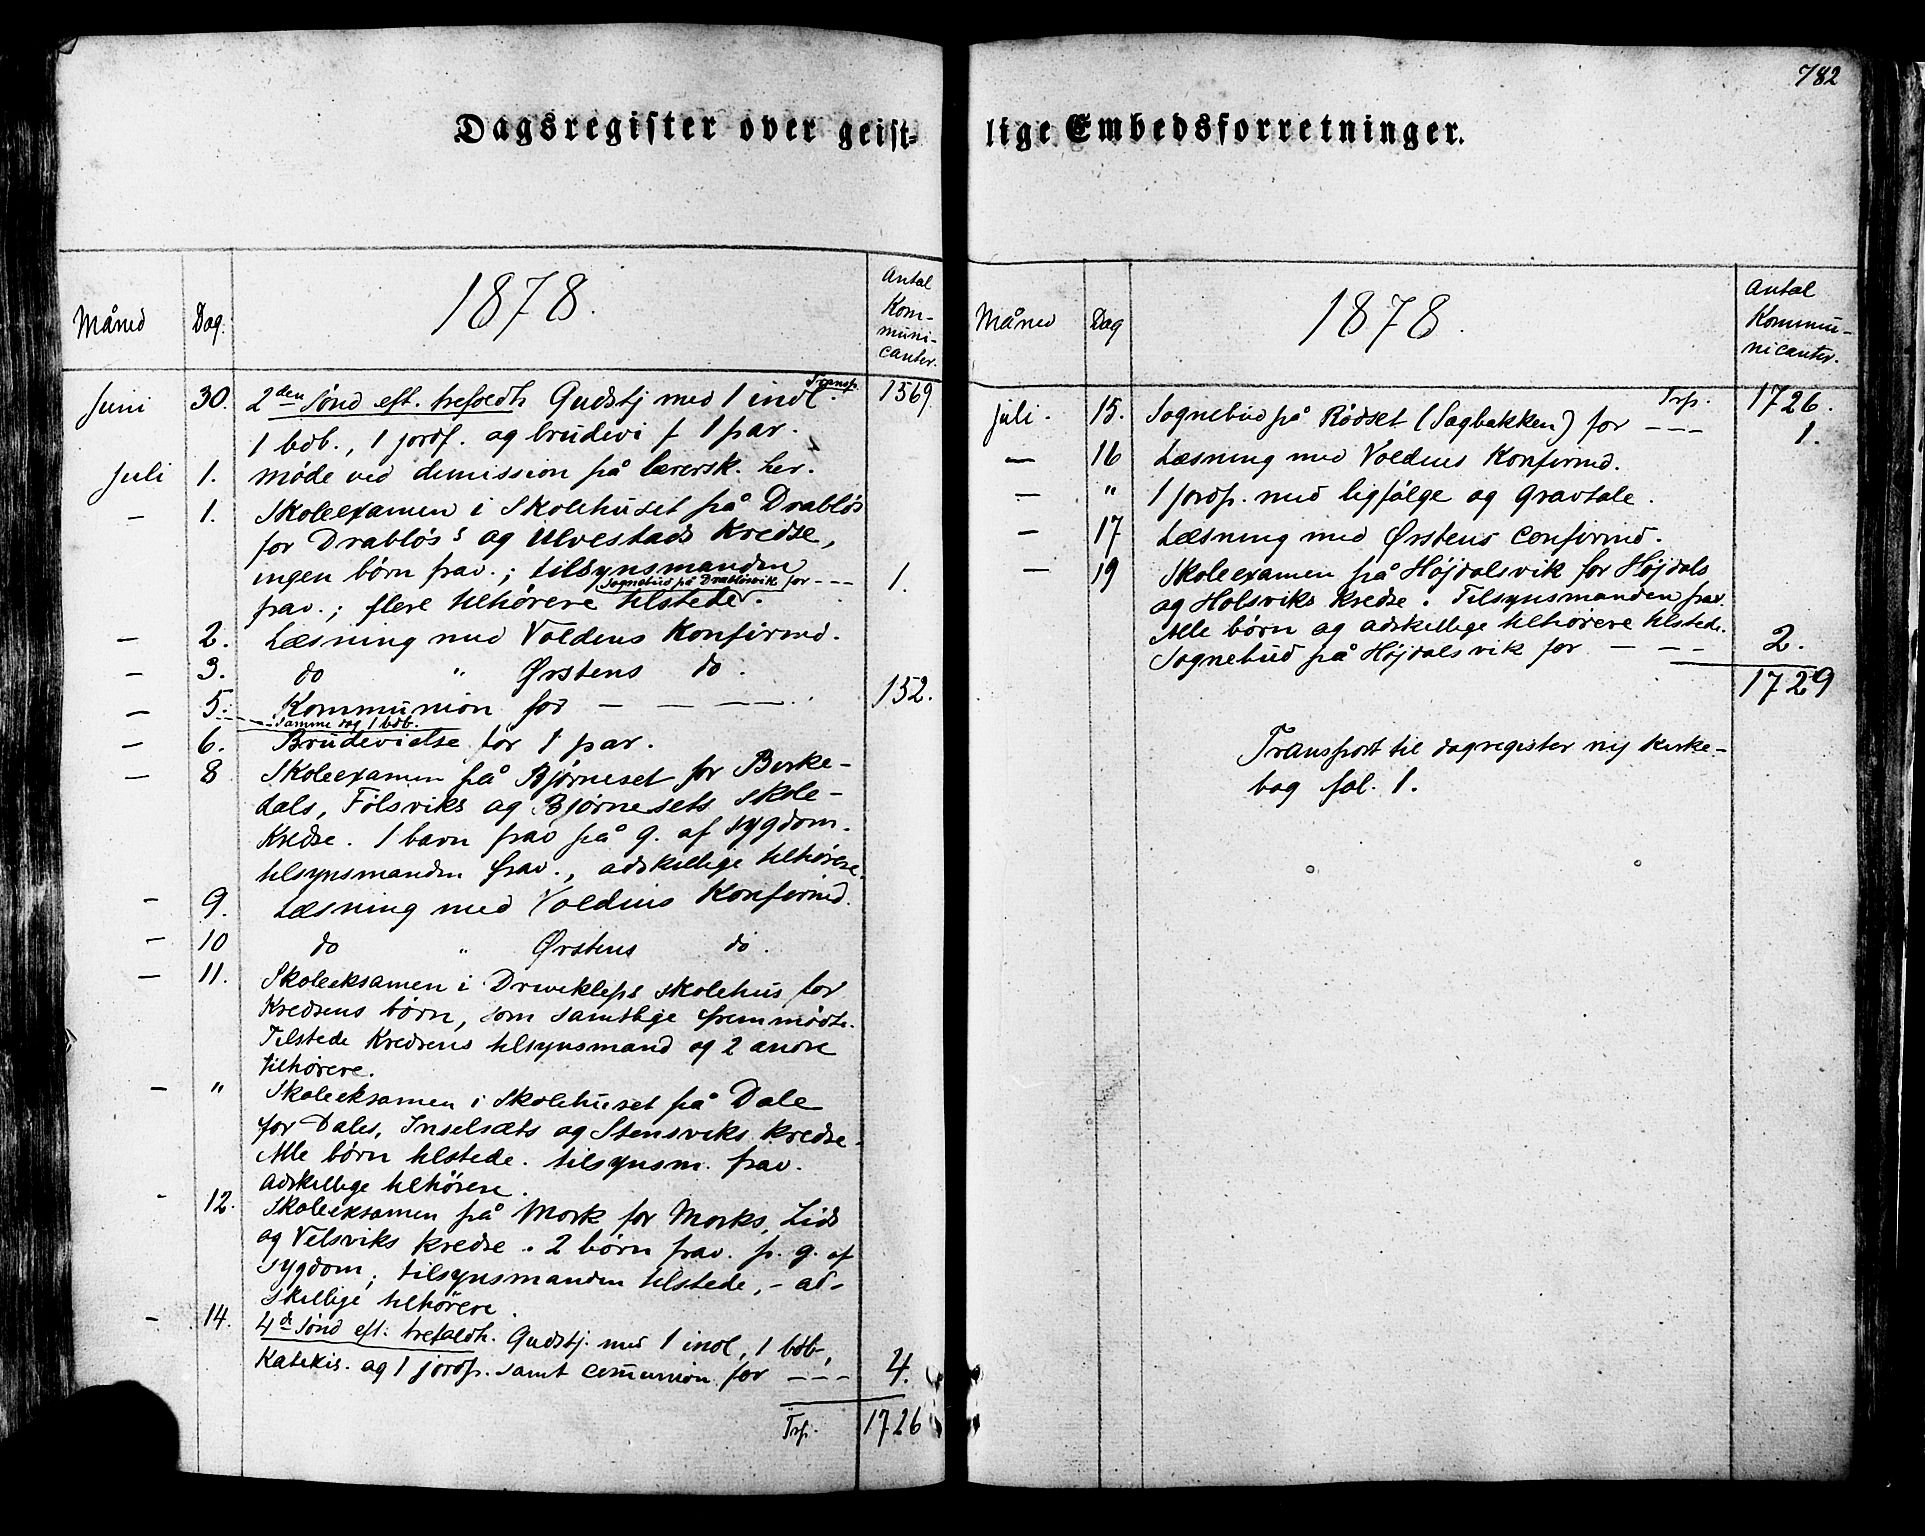 782
Dagsregister over geist-
lige Embedsforretninger.
Måned Dag. 1878. Antal Kom-
muni-
canter.
Juni 30. 2den sønd eft. trefoldh. Gudstj med 1 indl. Transp. 1569
1 bdb., 1 jordf. og brudevi f 1 par.
Juli 1. Møde ved dimission på lærersk. her.
— 1. Skoleexamen i Skolehuset på Drabløs
for Drabløs's og Ulvestads Kredse,
ingen børn frav.; tilsynsmanden
Sognebud på Drabløsvik for --- 1.
frav.; flere tilhørere tilstede.
— 2. Læsning med Voldens Konfirmd.
— 3. do " Ørstens do.
— 5. Kommunion for — — — — 152.
samme dag 1 bdb.
— 6. Brudevielse for 1 par.
— 8 Skoleexamen på Bjørneset for Birke-
dals, Følsviks og Bjørnesets Skole-
Kredse. 1 barn frav på g. af sygdom.
tilsynsmanden frav., adskillige tilhørere.
— 9. Læsning med Voldens Konfirmd.
— 10 do " Ørstens do.
— 11. Skoleeksamen i Drivekleps skolehus for
Kredsens børn, som samtlige fremmødte.
Tilstede Kredsens tilsynsmand og 2 andre
tilhørere.
— " Skoleeksamen i Skolehuset på Dale
for Dales, Inselsæts og Stensviks kredse.
Alle børn tilstede. tilsynsm. frav.
adskillige tilhørere.
- 12. Skoleeksamen på Mork for Morks, Lids
og Velsviks kredse. 2 børn frav. p. g. af
sygdom; tilsynsmanden tilstede, - ad-
skillige tilhørere.
— 14. 4de sønd eft. trefoldh. Gudstj. med 1 indl, 1 bdb,
Katekis. og 1 jordf. samt comunion for --- 4.
Trp. 1726
Måned Dag 1878. Antal
Kommu-
nicanter.
Trp. 1726.
Juli. 15. Sognebud på Rødset (Sagbakken) for --- 1.
— 16 Læsning med Voldens Konfirmd.
— " 1 jordf. med ligfølge og Gravtale.
— 17 Læsning med Ørstens confirmd.
— 19 Skoleexamen på Højdalsvik for Højdals
og Holsviks Kredse. Tilsynsmanden frav.
Alle børn og adskillige tilhørere tilstede.
Sognebud på Højdalsvik for — — — 2.
1729
Transport til dagregister ny kirke-
bog fol. 1.